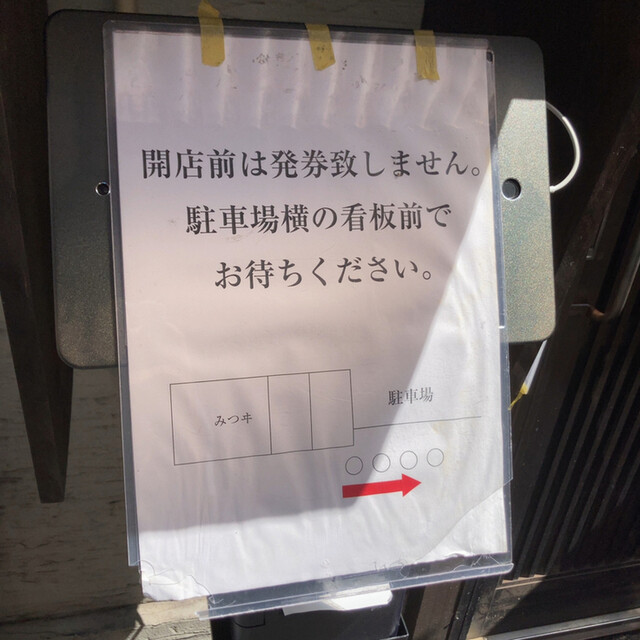 開店前は発券致しません。
駐車場横の看板前で
お待ちください。
駐車場
みつヰ